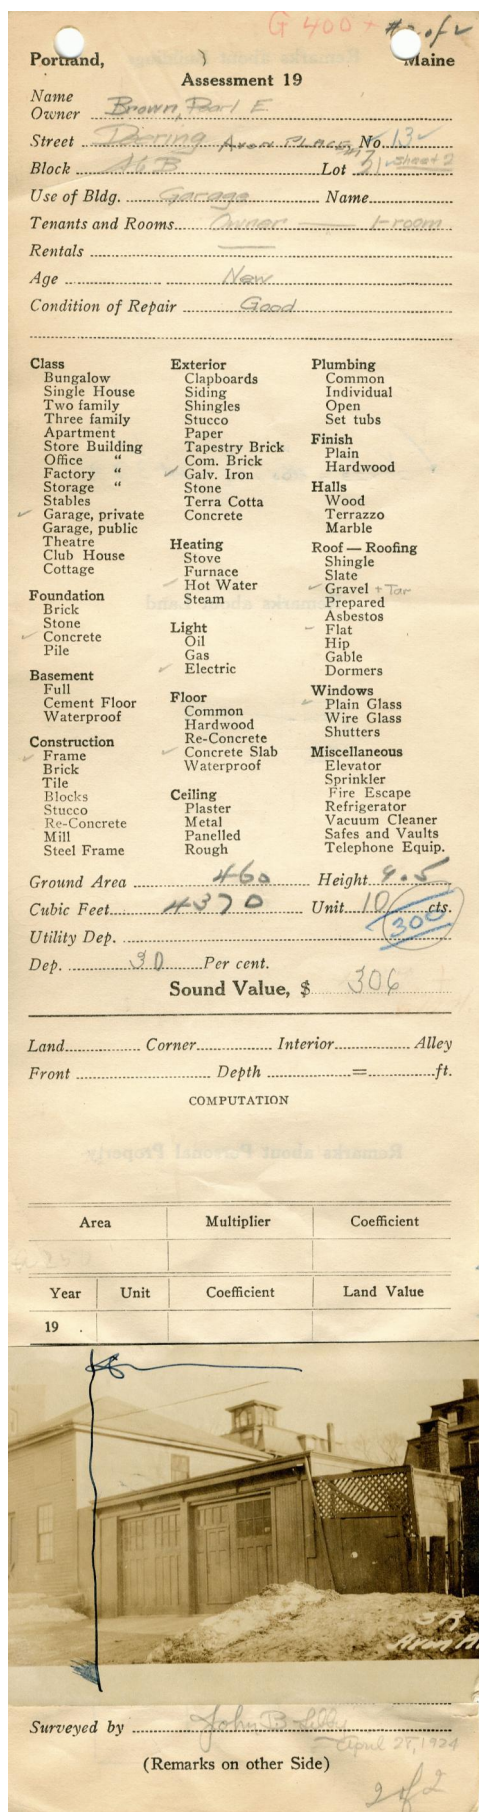 G 400 + #2 of 2
Portland, Maine
Assessment 19
Name
Owner Brown, Pearl E.
Street Deering Avon Place, No. 13
Block 46 B Lot 31 sheet 2
Use of Bldg. Garage Name
Tenants and Rooms Owner — 1-room
Rentals —
Age New
Condition of Repair Good
Class
Bungalow
Single House
Two family
Three family
Apartment
Store Building
Office "
Factory "
Storage "
Stables
✓ Garage, private
Garage, public
Theatre
Club House
Cottage
Foundation
Brick
Stone
✓ Concrete
Pile
Basement
Full
Cement Floor
Waterproof
Construction
✓ Frame
Brick
Tile
Blocks
Stucco
Re-Concrete
Mill
Steel Frame
Exterior
Clapboards
Siding
Shingles
Stucco
Paper
Tapestry Brick
Com. Brick
✓ Galv. Iron
Stone
Terra Cotta
Concrete
Heating
Stove
Furnace
✓ Hot Water
Steam
Light
Oil
Gas
✓ Electric
Floor
Common
Hardwood
Re-Concrete
✓ Concrete Slab
Waterproof
Ceiling
Plaster
Metal
Panelled
Rough
Plumbing
Common
Individual
Open
Set tubs
Finish
Plain
Hardwood
Halls
Wood
Terrazzo
Marble
Roof — Roofing
Shingle
Slate
✓ Gravel + Tar
Prepared
Asbestos
– Flat
Hip
Gable
Dormers
Windows
✓ Plain Glass
Wire Glass
Shutters
Miscellaneous
Elevator
Sprinkler
Fire Escape
Refrigerator
Vacuum Cleaner
Safes and Vaults
Telephone Equip.
Ground Area 460 Height 9.5
Cubic Feet 4370 Unit 10 cts.
300
Utility Dep.
Dep. 30 Per cent.
Sound Value, $ 306
Land Corner Interior Alley
Front Depth = ft.
COMPUTATION
Area Multiplier Coefficient
Year Unit Coefficient Land Value
19
Surveyed by John B. Libby
April 28, 1924
(Remarks on other Side)
2 of 2